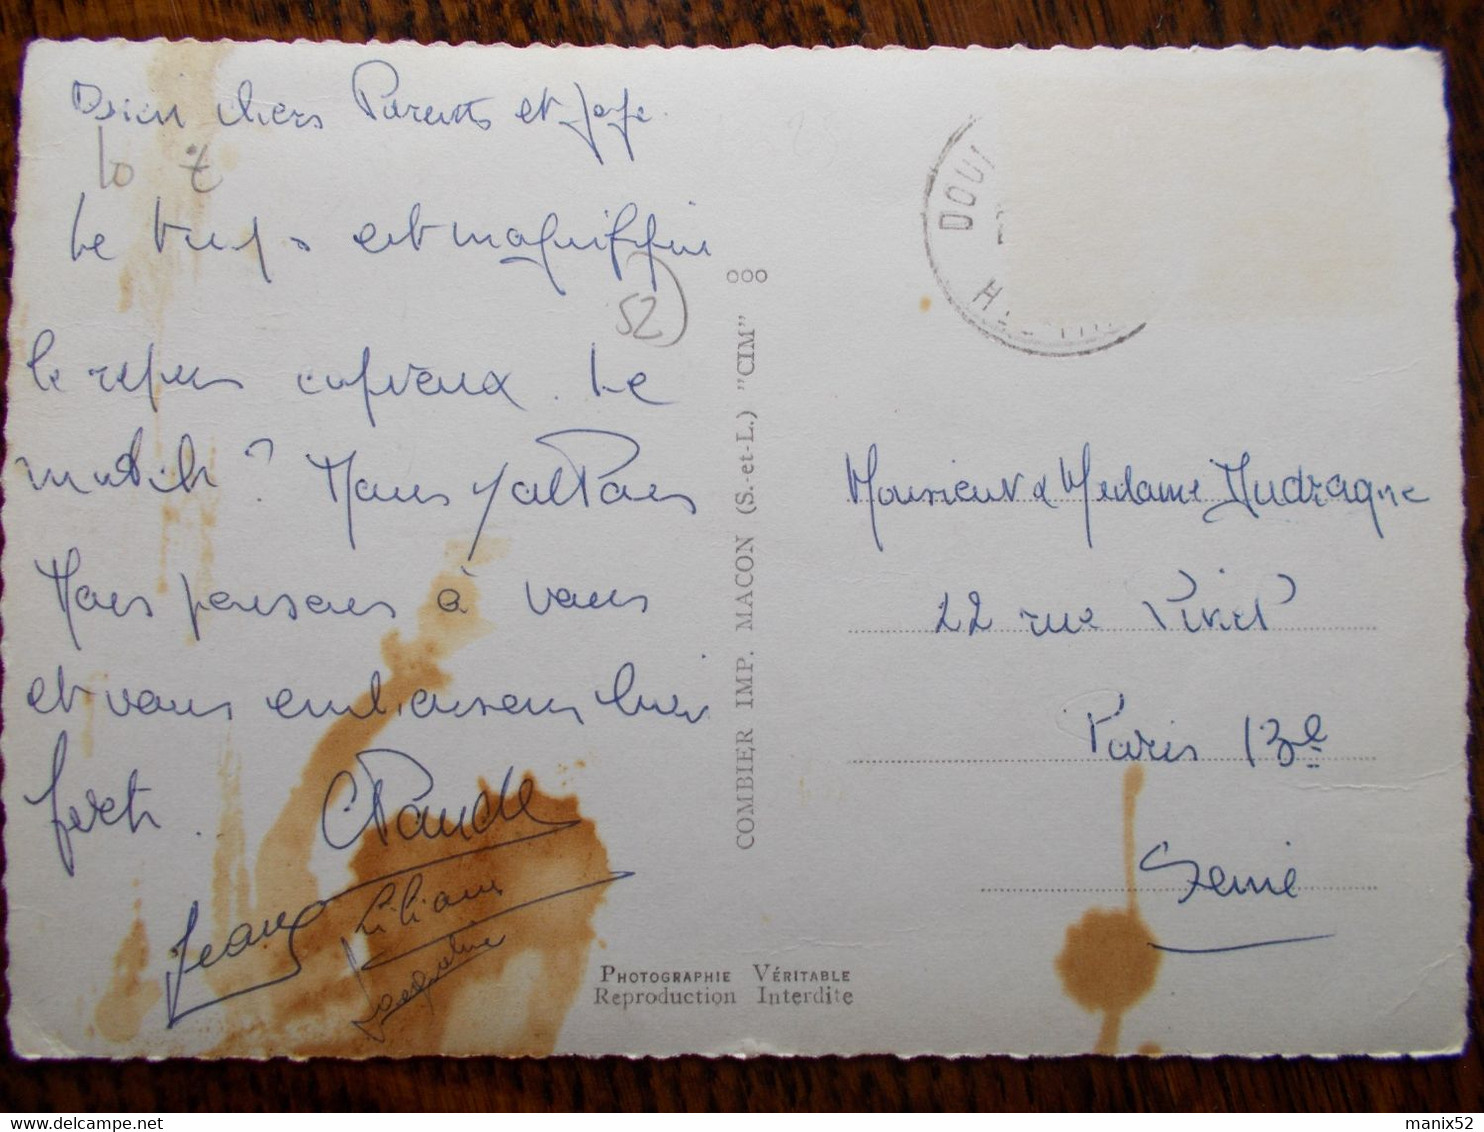 Bien chers Parents et Jojo.
10 €
Le temps est magnifique
52
le repas copieux. Le
moral ? Mais
Nous pensons à vous
et vous embrassons bien
fort. Claude
Jean
Liliane
Jacqueline
ooo
COMBIER IMP. MACON (S.-et-L.) "CIM"
PHOTOGRAPHIE VÉRITABLE
Reproduction Interdite
DOU
Monsieur & Madame Audragne
22 rue Pinel
Paris 13e
Seine
manix52